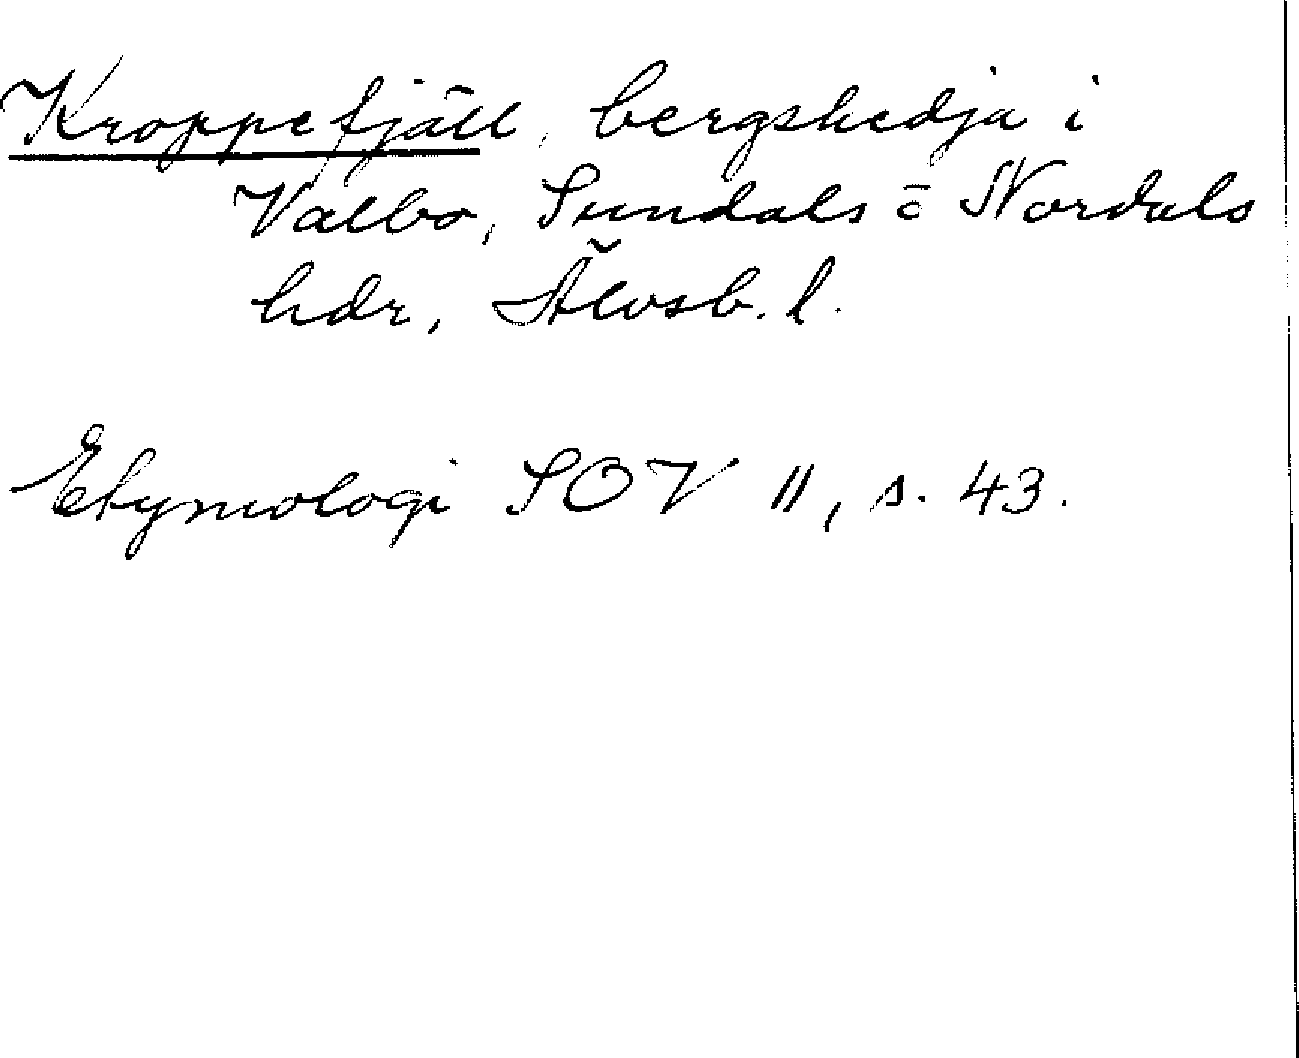 Kroppefjäll, bergskedja i
Valbo, Sundals o Nordals
hdr, Älvsb. l.
Etymologi SOV II, s. 43.